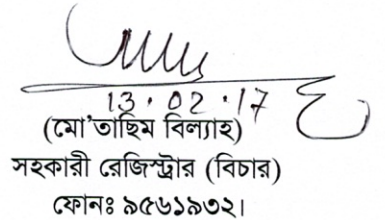 13.02.17
(মো'তাছিম বিল্যাহ)
সহকারী রেজিস্ট্রার (বিচার)
ফোনঃ ৯৫৬১৯৩২।